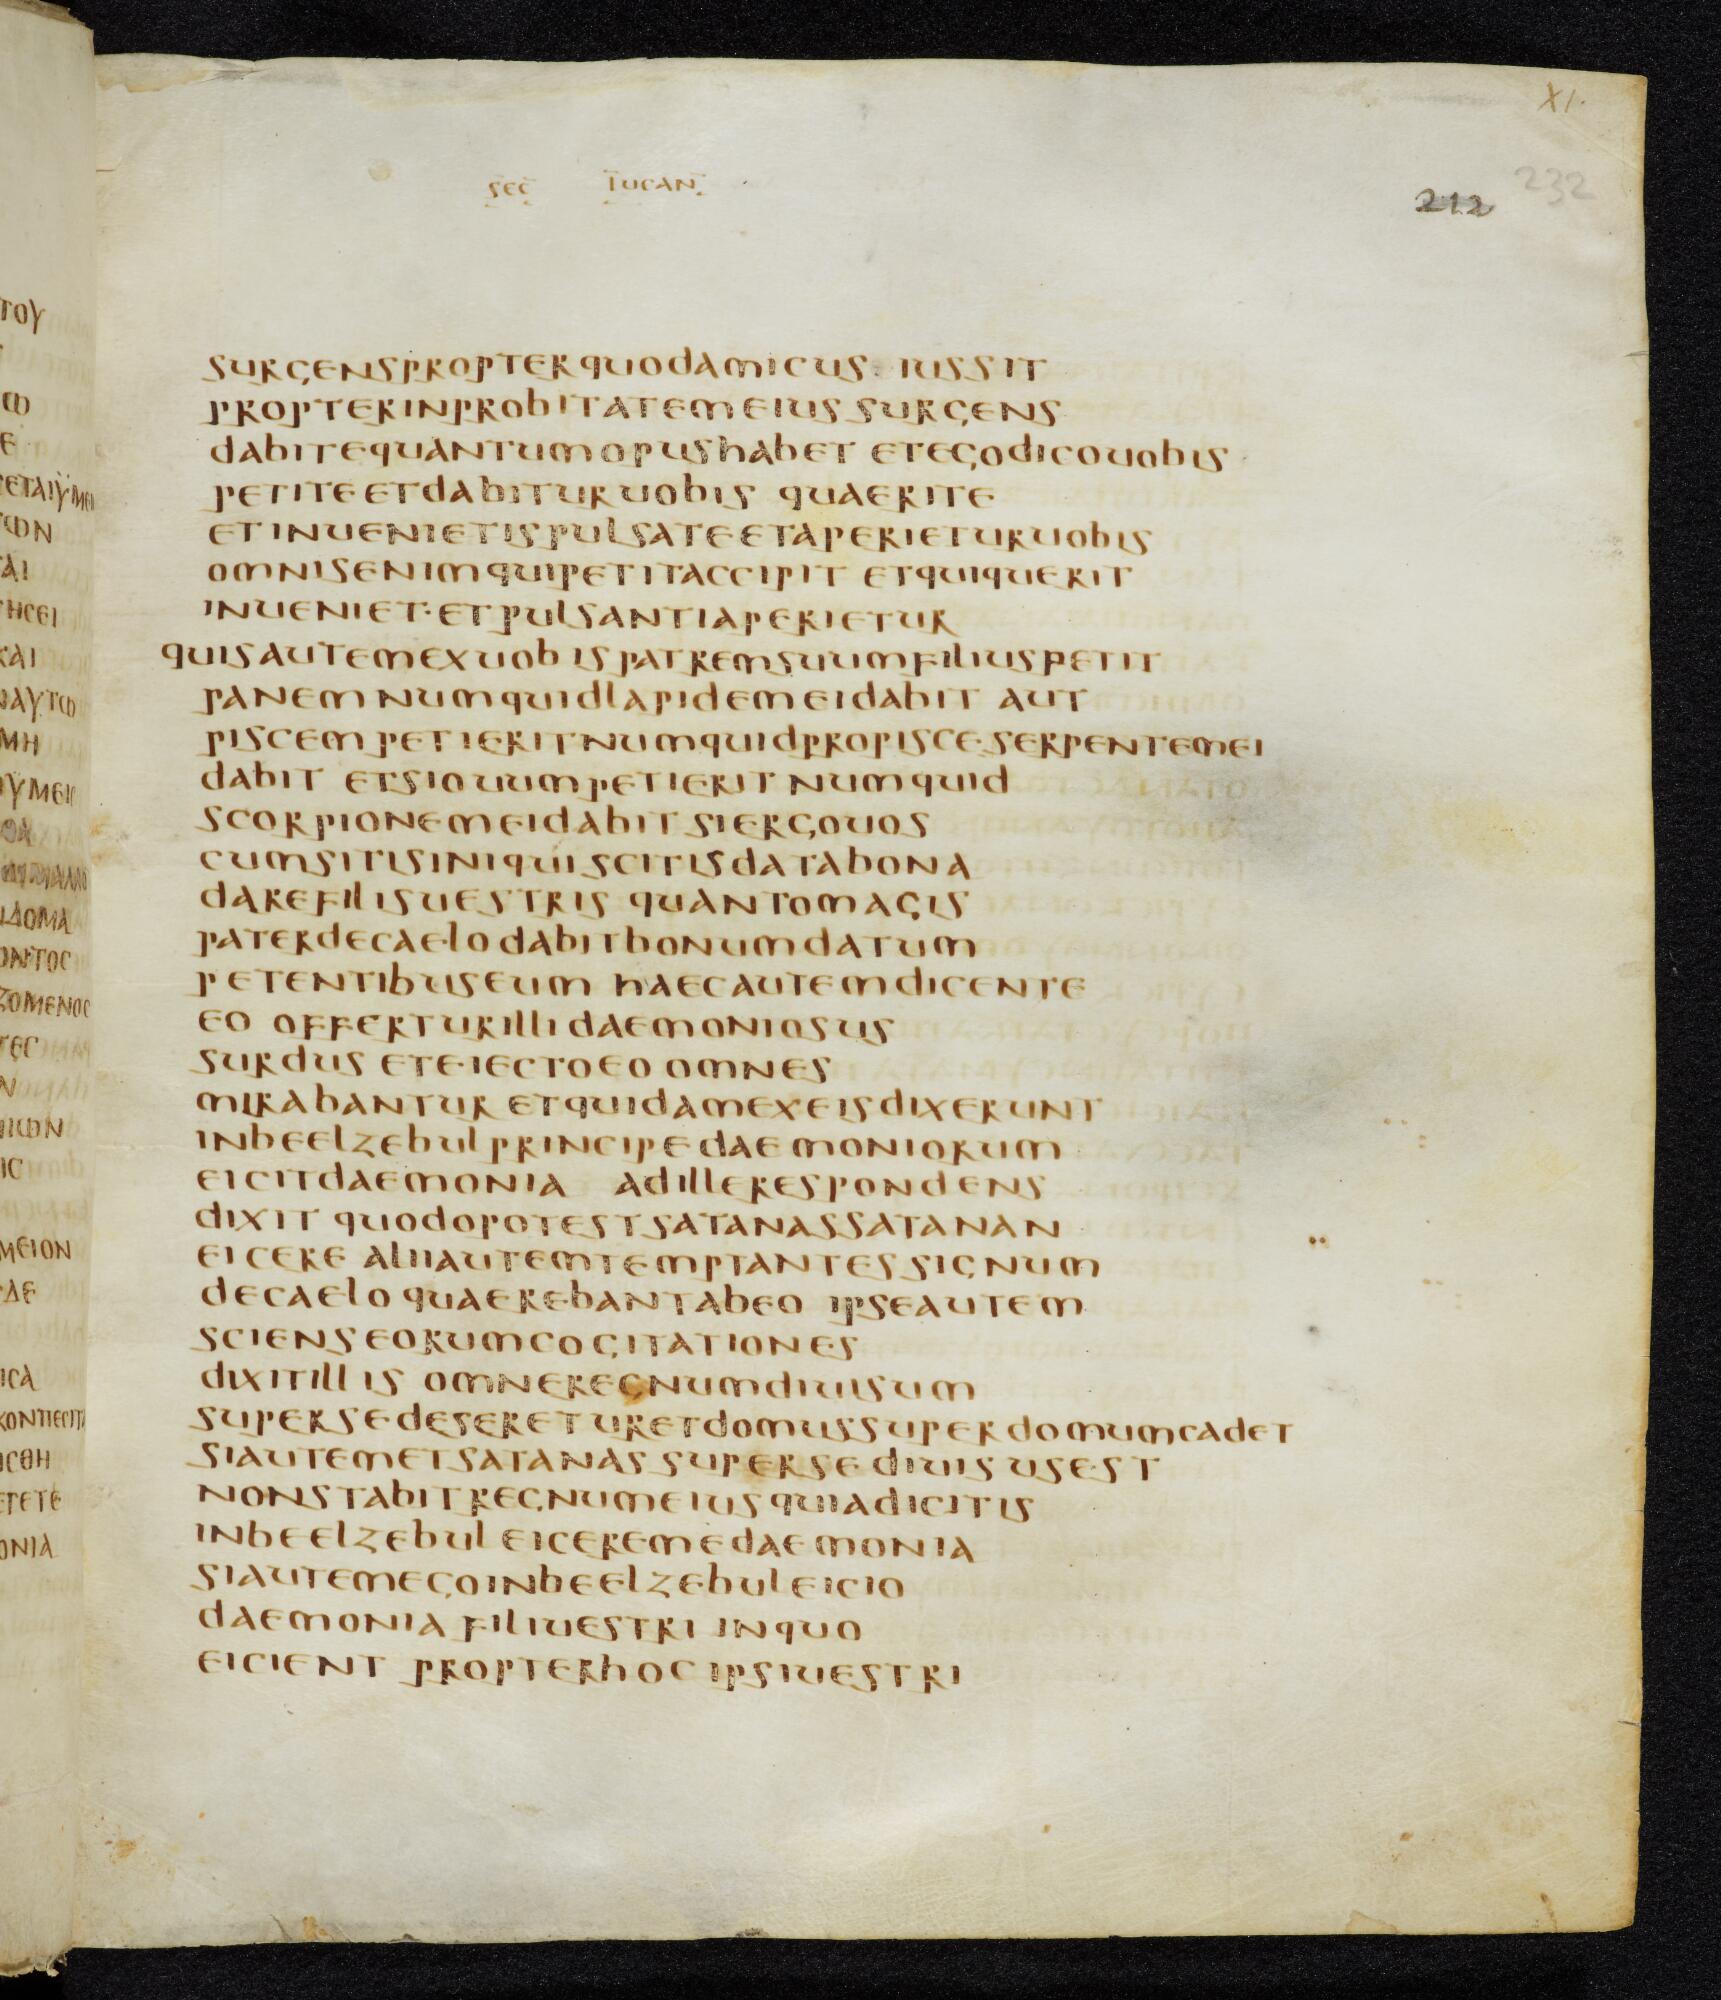 XI.
SEC LUCAN
212 232
surgenspropterquodamicus iussit
propterinprobitatemeius surgens
dabitequantumopushabet etegodicouobis
petiteetdabituruobis quaerite
etinuenietispulsateetaperieturuobis
omnisenimquipetitaccipit etquiquerit
inueniet·etpulsantiaperietur
quisautemexuobispatremsuumfiliuspetit
panemnumquidlapidemeidabit aut
piscempetieritnumquidpropisce·serpentemei
dabit etsiouumpetieritnumquid
scorpionemeidabit siergouos
cumsitisiniquiscitisdatabona
darefilisuestris quantomagis
paterdecaelodabitbonumdatum
petentibuseum haecautemdicente
eo offerturillidaemoniosus
surdus eteiectoeo omnes
mirabantur etquidamexeisdixerunt
inbeelzebulprincipedaemoniorum
eicitdaemonia adillerespondens
dixit quodopotestsatanassatanan
eicere aliiautemtemptantessignum
decaelo quaerebantabeo ipseautem
scienseorumcogitationes
dixitillis omneregnumdiuisum
supersedesereturetdomussuperdomumcadet
siautemetsatanassupersediuisusest
nonstabitregnumeiusquiadicitis
inbeelzebul eiceremedaemonia
siautemegoinbeelzebuleicio
daemonia filiuestri inquo
eicient propterhocipsiuestri